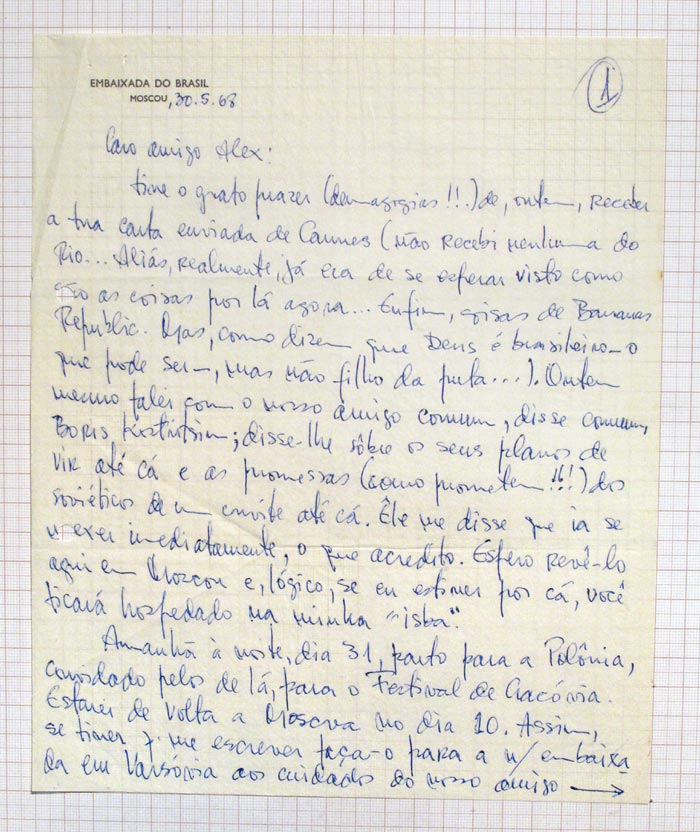 1
EMBAIXADA DO BRASIL
MOSCOU, 30.5.68
Caro amigo Alex:
tive o grato prazer (demagogias!!!) de, ontem, receber
a tua carta enviada de Cannes (não recebi nenhuma do
Rio... Aliás, realmente, já era de se esperar visto como
são as coisas por lá agora... Enfim, coisas de Bananas
Republic. Mas, como dizem que Deus é brasileiro - o
que pode ser -, mas não filho da puta...). Ontem
mesmo falei com o nosso amigo comum, disse comum,
Boris; disse-lhe sôbre os seus planos de
vir até cá e as promessas (como prometem!!!) dos
soviéticos de um convite até cá. Êle me disse que ia se
mexer imediatamente, o que acredito. Espero revê-lo
aqui em Moscou e, lógico, se eu estiver por cá, você
ficará hospedado na minha "isba".
Amanhã à noite, dia 31, parto para a Polônia,
convidado pelos de lá, para o Festival de Cracóvia.
Estarei de volta a Moscou no dia 10. Assim,
se tiver me escrever faça-o para a n/ embaixa
da em Varsóvia aos cuidados do nosso amigo →